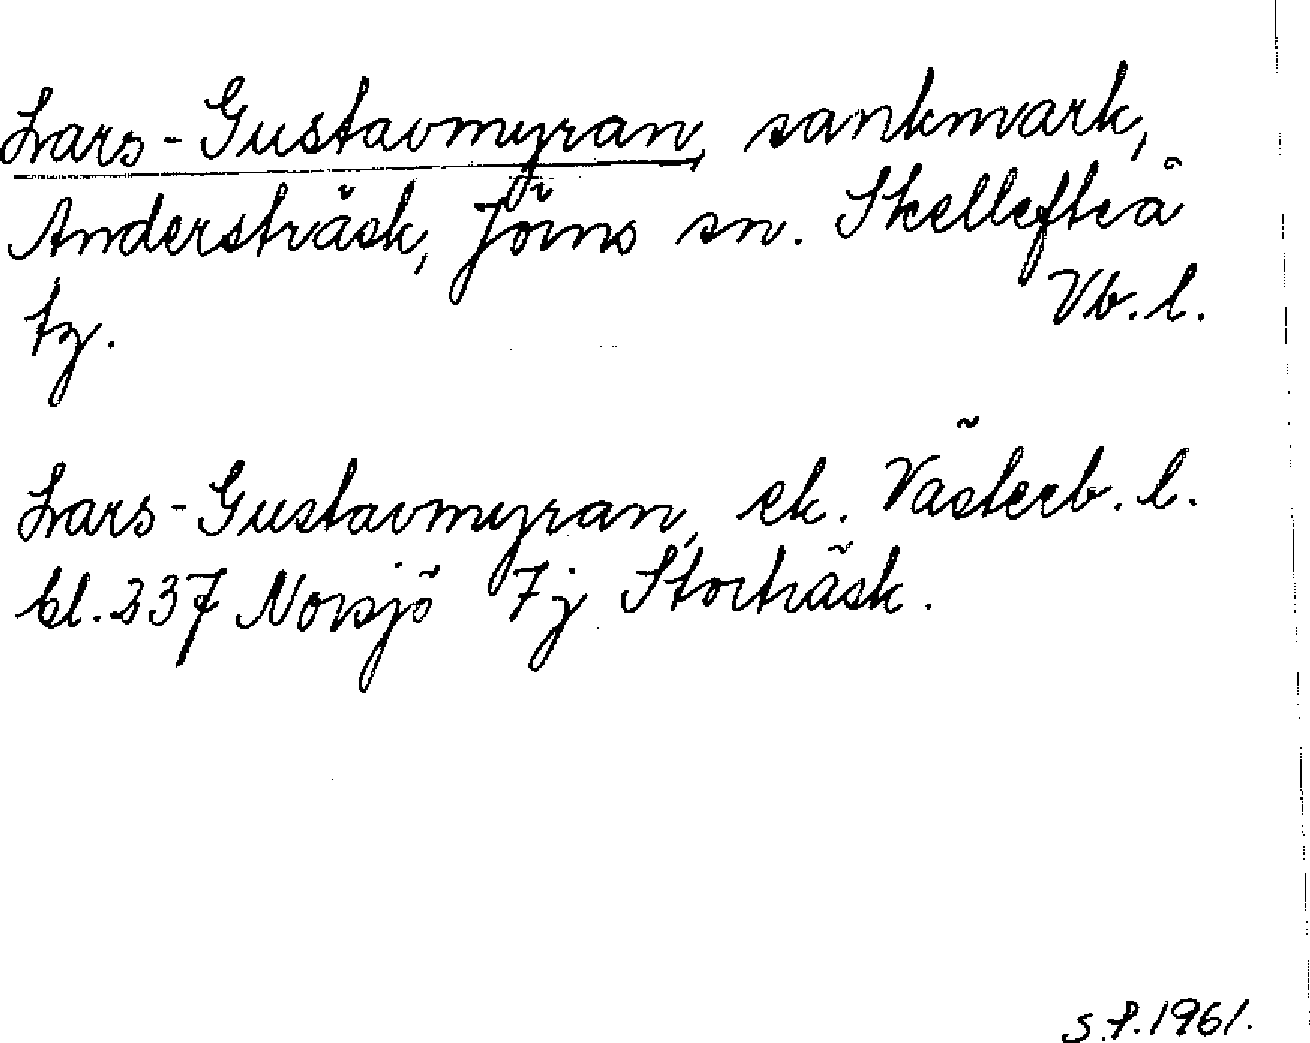 Lars-Gustavmyran, sankmark,
Andersträsk, Jörns sn. Skellefteå
tg. Vb. l.
Lars-Gustavmyran, ek. Västerb. l.
bl. 237 Norsjö 7j Storträsk.
S.P. 1961.